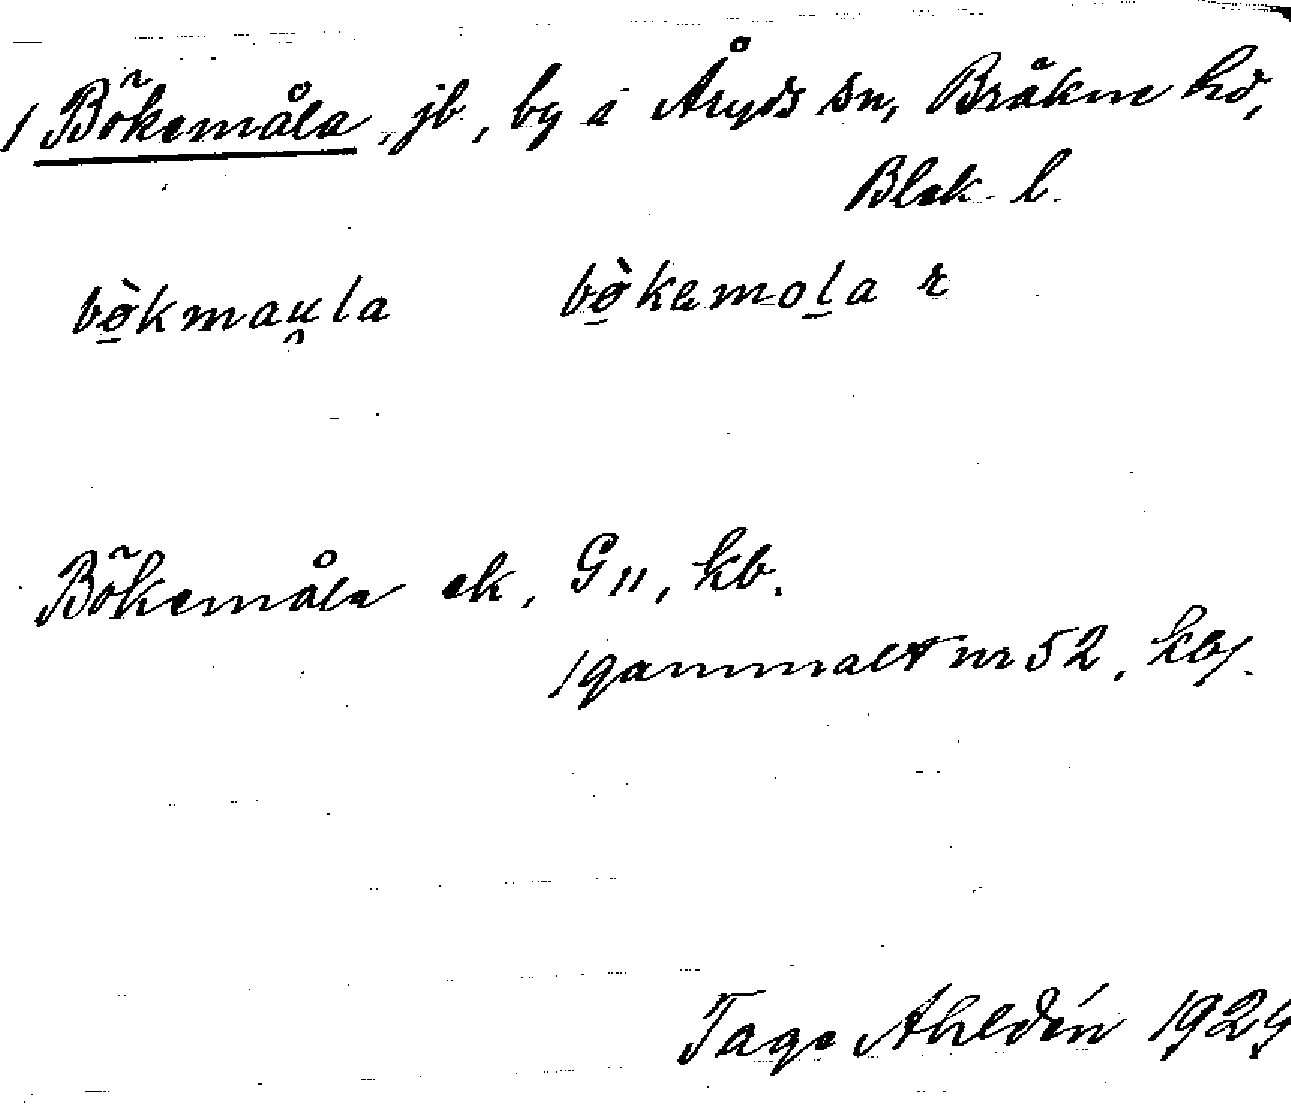 / Bökemåla, jb, by i Åryds sn, Bräkne hd,
Blek. l.
bø̀kmau̯la bø̀kemola r
Bökemåla ek, G11, kb.
/gammalt nr 52, kb/.
Tage Ahldén 1929